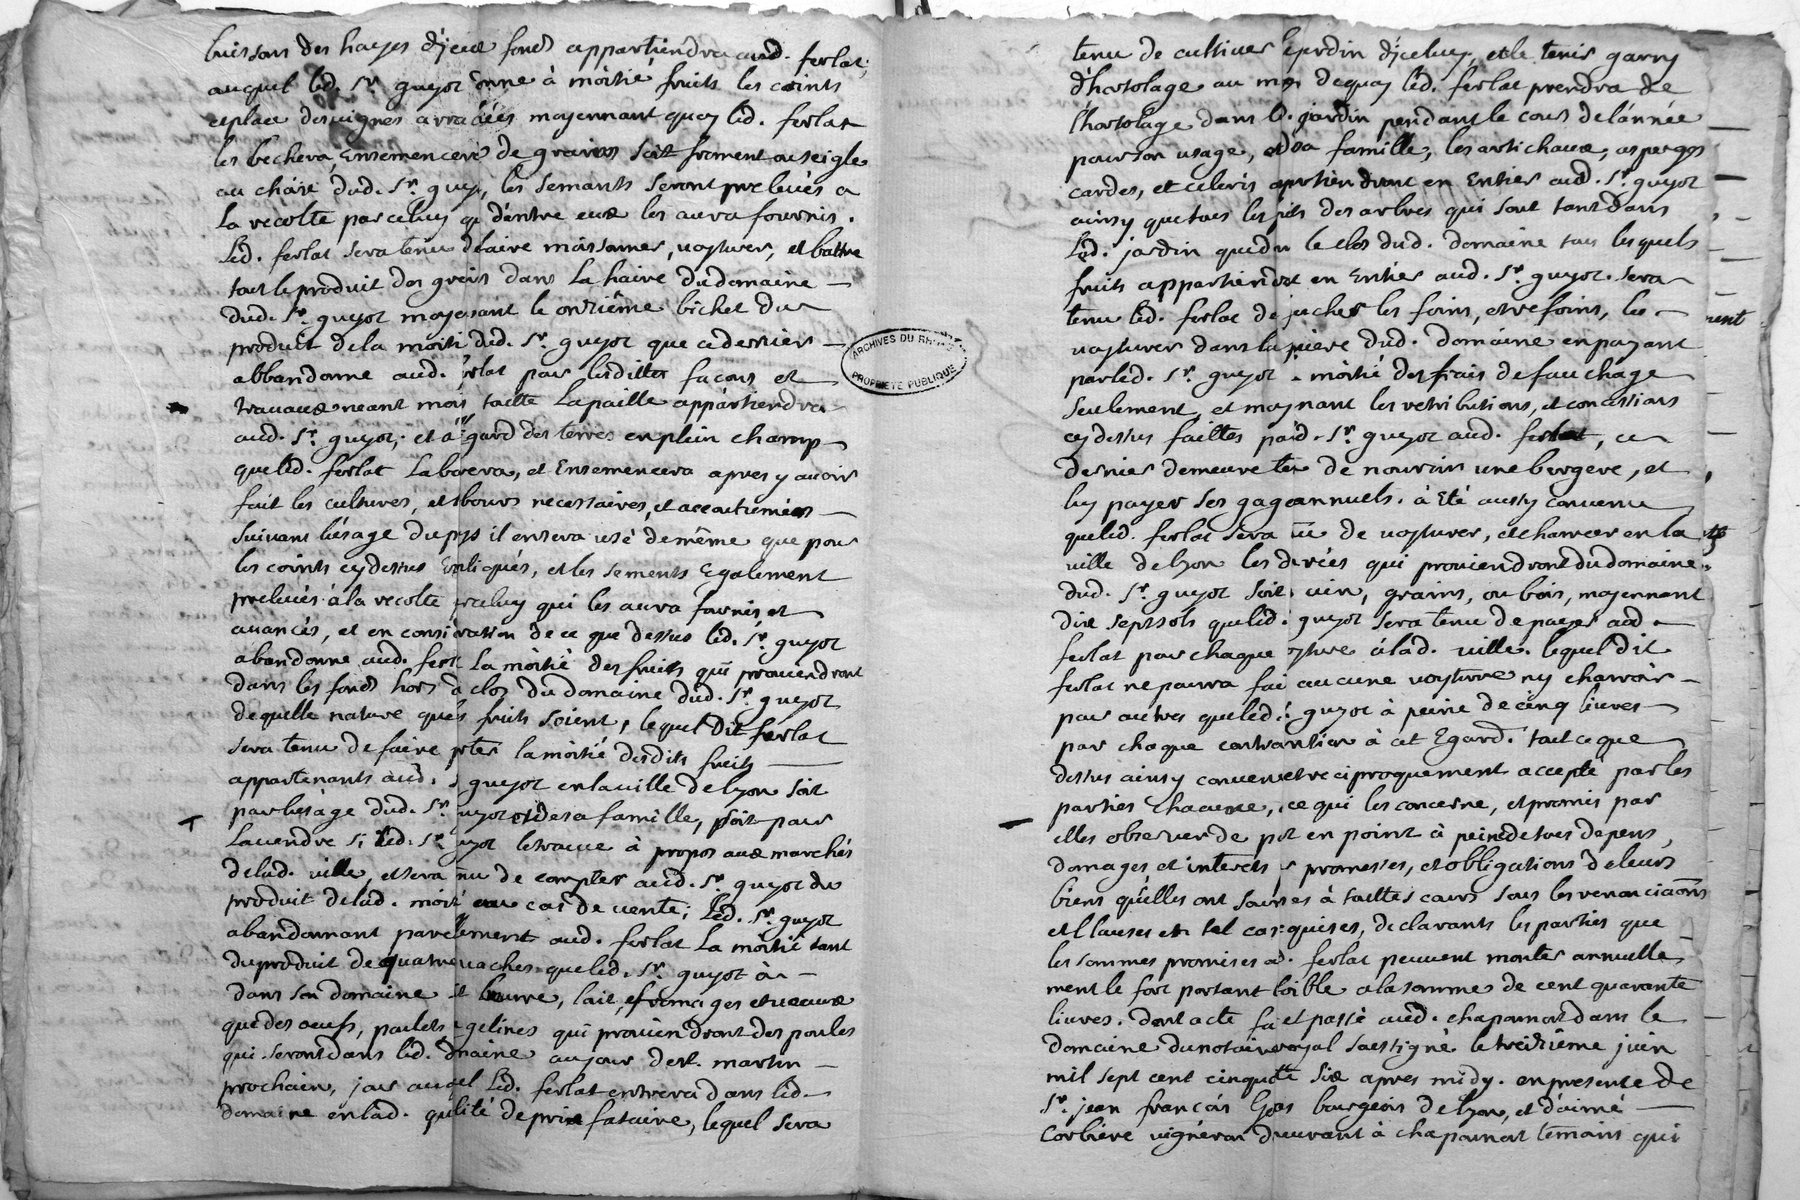 buissons des hayes d'jceux fonds appartiendra aud. ferlat;
auquel led. Sr. guyot donne à moitié fruits les coints
et place des vignes arrachées moyennant quoy led. ferlat
les bechera, Ensemencera de grains soit froment ou seigle
au choix dud. Sr. guyot, les semants seront prelevés a
La recolte par celuy qui d'entre eux les aura fournis.
Led. ferlat sera tenu de faire moissonner, voyturer, et battre
tout le produit des grains dans La haire du domaine
dud. Sr. guyot moyenant le onzième bichet du
produit de la moitié dud. Sr. guyot que ce dernier
abbandonne aud. ferlat pour lesdittes facons et
travaux neant mois toutte La paille appartiendra
aud. Sr. guyot; et à l'egard des terres en plein champ
que led. ferlat Labourera, et Ensemencera apres y avoir
fait les cultures, et labours necessaires, et accoutumées
suivant l'usage du pays il en sera usé de même que pour
les coints cy dessus Expliqués, et les sements Egalement
prelevés à la recolte par celuy qui les aura fournis et
avancés, et en consideration de ce que dessus led. Sr. guyot
abandonne aud. ferlat La moitié des fruits qui proviendront
dans les fonds hors du clos du domaine dud. Sr. guyot
de quelle nature quels fruits soient, lequel Dit ferlat
sera tenu de faire porter la moitié desdits fruits
appartenants aud. Sr guyot en la ville de lyon soit
pour l'usage dud. Sr. guyot et de sa famille, soit pour
La vendre si Led. Sr. guyot le trouve à propos aux marchés
de lad. ville, et sera tenu de compter aud. Sr. guyot du
produit de lad. moitié au cas de vente; Led. Sr. guyot
abandonnant pareillement aud. ferlat La moitié tant
du produit de quatre vaches que led. Sr. guyot à
dans son domaine et beurre, lait, fromages et veaux
que des oeufs, poulets et gelines qui proviendront des poules
qui seront dans led. domaine au jour de st. martin
prochain, jour auquel Led. ferlat entrera dans led.
domaine en lad. qualité de prix fataire, lequel sera
tenu de cultiver le jardin d'jceluy, et le tenir garny
d'hortolage au moyen de quoy led. ferlat prendra de
l'hortolage dans led. jardin pendant le cours de l'année
pour son usage, et de sa famille, les artichaux, asperges
cardes, et celeris apartiendront en Entier aud. Sr. guyot
ainsy que tous les fruits des arbres qui sont tant dans
Led. jardin que du le clos dud. domaine tous lesquels
fruits appartiendront en Entier aud. Sr. guyot. sera
tenu led. ferlat de jucher les foins, et refoins, les
voyturer dans la feniere dud. domaine en payant
par led. Sr. guyot la moitié des frais de fauchage
seulement, et moyenant les retributions, et concessions
cy dessus faittes par led. Sr. guyot aud. ferlat, ce
dernier demeure tenu de nourrir une bergere, et
luy payer ses gages annuels. à Eté aussy convenu
que led. ferlat sera tenu de voyturer, et charrier en la
ville de lyon les denrées qui proviendront du domaine
dud. Sr. guyot soit, vin, grains, ou bois, moyennant
dix sept sols que led. guyot sera tenu de payer aud.
ferlat pour chaque voyture à lad. ville. lequel dit
ferlat ne pourra faire aucune voyture ny charroir
pour autres que led. Sr. guyot à peine de cinq livres
par chaque contravention à cet Egard. tout ce que
dessus ainsy convenu et reciproquement accepté par les
parties chacune, ce qui les concerne, et promis par
elles observer de point en point à peine de tous depens,
domages et interets, promesses, et obligations de leurs
biens qu'elles ont soumis à touttes cours sous les renonciaõns
et Clauses en tel cas requises, declarants les parties que
les sommes promises aud. ferlat peuvent monter annuelle
ment le fort portant foible a la somme de cent quarante
livres. dont acte fait et passé aud. chaponost dans le
domaine du notaire royal soussigné le treizième juin
mil sept cent cinquante six apres midy. en presence de
Sr. jean françois bourgeois de lyon, et d'aimé
Corbiere vigneron demeurant à chaponost temoins qui
ARCHIVES DU RHÔNE
PROPRIÉTÉ PUBLIQUE